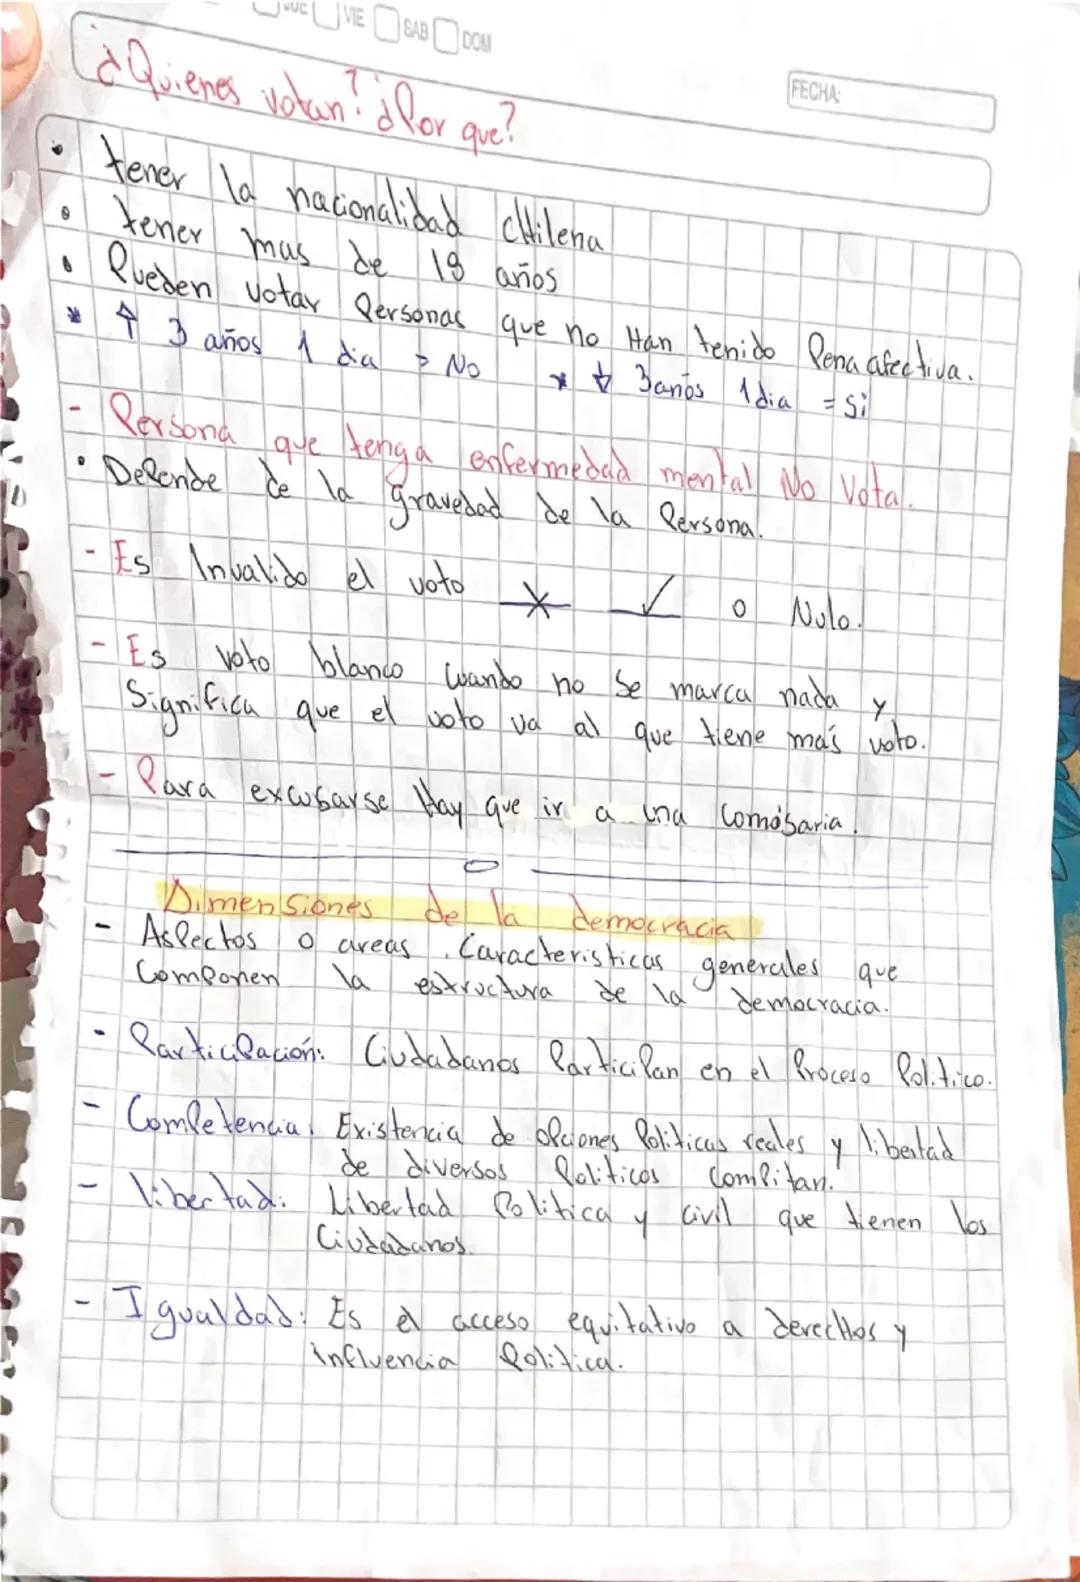 JUE VIE SAB DOM
FECHA:
¿Quienes votan? ¿Por que?
• tener la nacionalidad cHilena
• tener mas de 18 años
• Pueden votar Personas que no Han tenido Pena afectiva.
* ↑ 3 años 1 dia = No * ↓ 3 años 1 dia = Si
- Persona que tenga enfermedad mental No Vota.
• Depende de la gravedad de la Persona.
- Es Invalido el voto * ✓ o Nulo.
- Es voto blanco cuando no se marca nada y
Significa que el voto va al que tiene más voto.
- Para excusarse Hay que ir a una Comósaria.
Dimensiones de la democracia
- Aspectos o areas. Caracteristicas generales que
Componen la estructura de la democracia.
- Participación: Ciudadanos Participan en el Proceso Politico.
- Competencia: Existencia de opciones Politicas reales y libertad
de diversos Politicos Compitan.
- libertad: Libertad Politica y Civil que tienen los
Ciudadanos.
- Igualdad: Es el acceso equitativo a derecHos y
influencia Politica.